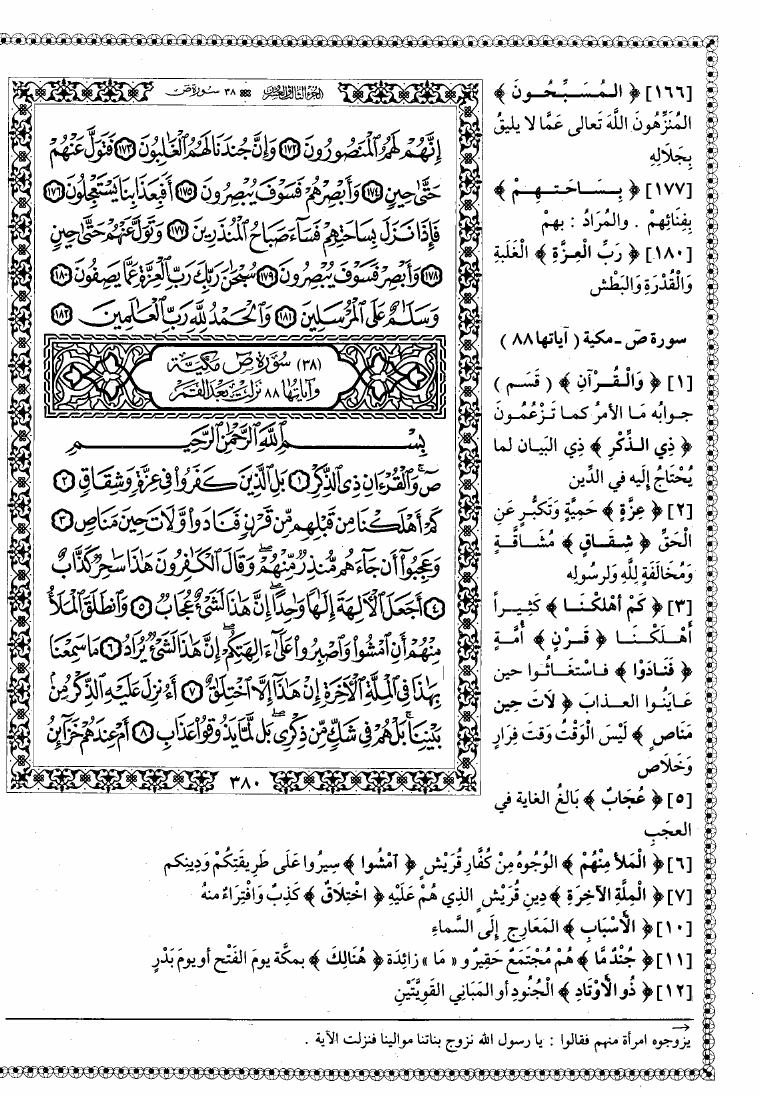 الجزء الثالث والعشرون ٣٨ سورة ص
إِنَّهُمْ لَهُمُ ٱلْمَنصُورُونَ ١٧٢ وَإِنَّ جُندَنَا لَهُمُ ٱلْغَٰلِبُونَ ١٧٣ فَتَوَلَّ عَنْهُمْ
حَتَّىٰ حِينٍ ١٧٤ وَأَبْصِرْهُمْ فَسَوْفَ يُبْصِرُونَ ١٧٥ أَفَبِعَذَابِنَا يَسْتَعْجِلُونَ ١٧٦
فَإِذَا نَزَلَ بِسَاحَتِهِمْ فَسَآءَ صَبَاحُ ٱلْمُنذَرِينَ ١٧٧ وَتَوَلَّ عَنْهُمْ حَتَّىٰ حِينٍ
١٧٨ وَأَبْصِرْ فَسَوْفَ يُبْصِرُونَ ١٧٩ سُبْحَٰنَ رَبِّكَ رَبِّ ٱلْعِزَّةِ عَمَّا يَصِفُونَ ١٨٠
وَسَلَٰمٌ عَلَى ٱلْمُرْسَلِينَ ١٨١ وَٱلْحَمْدُ لِلَّهِ رَبِّ ٱلْعَٰلَمِينَ ١٨٢
(٣٨) سُورَةُ صٓ مَكِّيَّة
وَآيَاتُهَا ٨٨ نَزَلَتْ بَعْدَ القَمَر
بِسْمِ ٱللَّهِ ٱلرَّحْمَٰنِ ٱلرَّحِيمِ
صٓ وَٱلْقُرْءَانِ ذِى ٱلذِّكْرِ ١ بَلِ ٱلَّذِينَ كَفَرُوا۟ فِى عِزَّةٍ وَشِقَاقٍ ٢
كَمْ أَهْلَكْنَا مِن قَبْلِهِم مِّن قَرْنٍ فَنَادَوا۟ وَّلَاتَ حِينَ مَنَاصٍ ٣
وَعَجِبُوٓا۟ أَن جَآءَهُم مُّنذِرٌ مِّنْهُمْ ۖ وَقَالَ ٱلْكَٰفِرُونَ هَٰذَا سَٰحِرٌ كَذَّابٌ
٤ أَجَعَلَ ٱلْءَالِهَةَ إِلَٰهًا وَٰحِدًا ۖ إِنَّ هَٰذَا لَشَىْءٌ عُجَابٌ ٥ وَٱنطَلَقَ ٱلْمَلَأُ
مِنْهُمْ أَنِ ٱمْشُوا۟ وَٱصْبِرُوا۟ عَلَىٰٓ ءَالِهَتِكُمْ ۖ إِنَّ هَٰذَا لَشَىْءٌ يُرَادُ ٦ مَا سَمِعْنَا
بِهَٰذَا فِى ٱلْمِلَّةِ ٱلْءَاخِرَةِ إِنْ هَٰذَآ إِلَّا ٱخْتِلَٰقٌ ٧ أَءُنزِلَ عَلَيْهِ ٱلذِّكْرُ مِنۢ
بَيْنِنَا ۚ بَلْ هُمْ فِى شَكٍّ مِّن ذِكْرِى ۖ بَل لَّمَّا يَذُوقُوا۟ عَذَابِ ٨ أَمْ عِندَهُمْ خَزَآئِنُ
٣٨٠
[١٦٦] ﴿ الـمُـسَـبِّحُـونَ ﴾
المُنَزِّهُونَ اللَّهَ تَعالى عَمَّا لا يليقُ
بِجَلالِهِ
[١٧٧] ﴿ بِـسَـاحَـتـهِـمْ ﴾
بِفِنَائِهِمْ . والمُرَادُ : بِهِمْ
[١٨٠] ﴿ رَبِّ الْعِزَّةِ ﴾ الْغَلَبَةِ
وَالْقُدْرَةِ وَالبَطْشِ
سورة صٓ - مكية ( آياتها ٨٨ )
[١] ﴿ وَالْـقُـرْآنِ ﴾ ( قَسَم )
جـوابُه مَـا الأمرُ كمـا تَـزْعُمُـونَ
﴿ ذِي الـذِّكْرِ ﴾ ذِي البَيَـان لما
يُحْتَاجُ إِلَيه في الدِّين
[٢] ﴿ عِزَّةٍ ﴾ حَمِيَّةٍ وَتَكَبُّرٍ عَنِ
الْحَقِّ ﴿ شِـقَـاقٍ ﴾ مُشَـاقَّـةٍ
وَمُخَالَفَةٍ لِلَّهِ وَلرسُولِه
[٣] ﴿ كَمْ أَهْلَكْنَـا ﴾ كَثِيـراً
أَهْـلَكْـنَـا ﴿ قَـرْنٍ ﴾ أُمَّـةٍ
﴿ فَنَادَوْا ﴾ فـاسْتَغَـاثُـوا حين
عَـايَنُـوا العـذابَ ﴿ لَاتَ حِينَ
مَنَاصٍ ﴾ لَيْسَ الْوَقْتُ وَقتَ فِرَارٍ
وَخَلَاص
[٥] ﴿ عُجَابٌ ﴾ بَالغُ الغاية في
العجَبِ
[٦] ﴿ الْمَلأ مِنْهُمْ ﴾ الوُجوهُ مِنْ كُفَّارِ قُرَيْشٍ ﴿ آمْشُوا ﴾ سِيرُوا عَلَى طَرِيقَتِكُمْ وَدِينِكم
[٧] ﴿ الْمِلَّةِ الآخِرَةِ ﴾ دِينِ قُرَيْشٍ الذي هُمْ عَلَيْهِ ﴿ اخْتِلاقٌ ﴾ كَذِبٌ وَافْتِرَاءٌ منهُ
[١٠] ﴿ الْأَسْبَابِ ﴾ المَعَارجِ إلَى السَّماءِ
[١١] ﴿ جُنْدٌ مَّا ﴾ هُمْ مُجْتَمَعٌ حَقِيرٌ و « مَا » زائِدَة ﴿ هُنَالِكَ ﴾ بمكَّة يومَ الفَتْح أو يومَ بَدْرٍ
[١٢] ﴿ ذُو الْأَوْتَادِ ﴾ الْجُنُودِ أو المَبَاني القَوِيَّتَيْن
يزوجوه امرأة منهم فقالوا : يا رسول الله نزوج بناتنا موالينا فنزلت الآية .